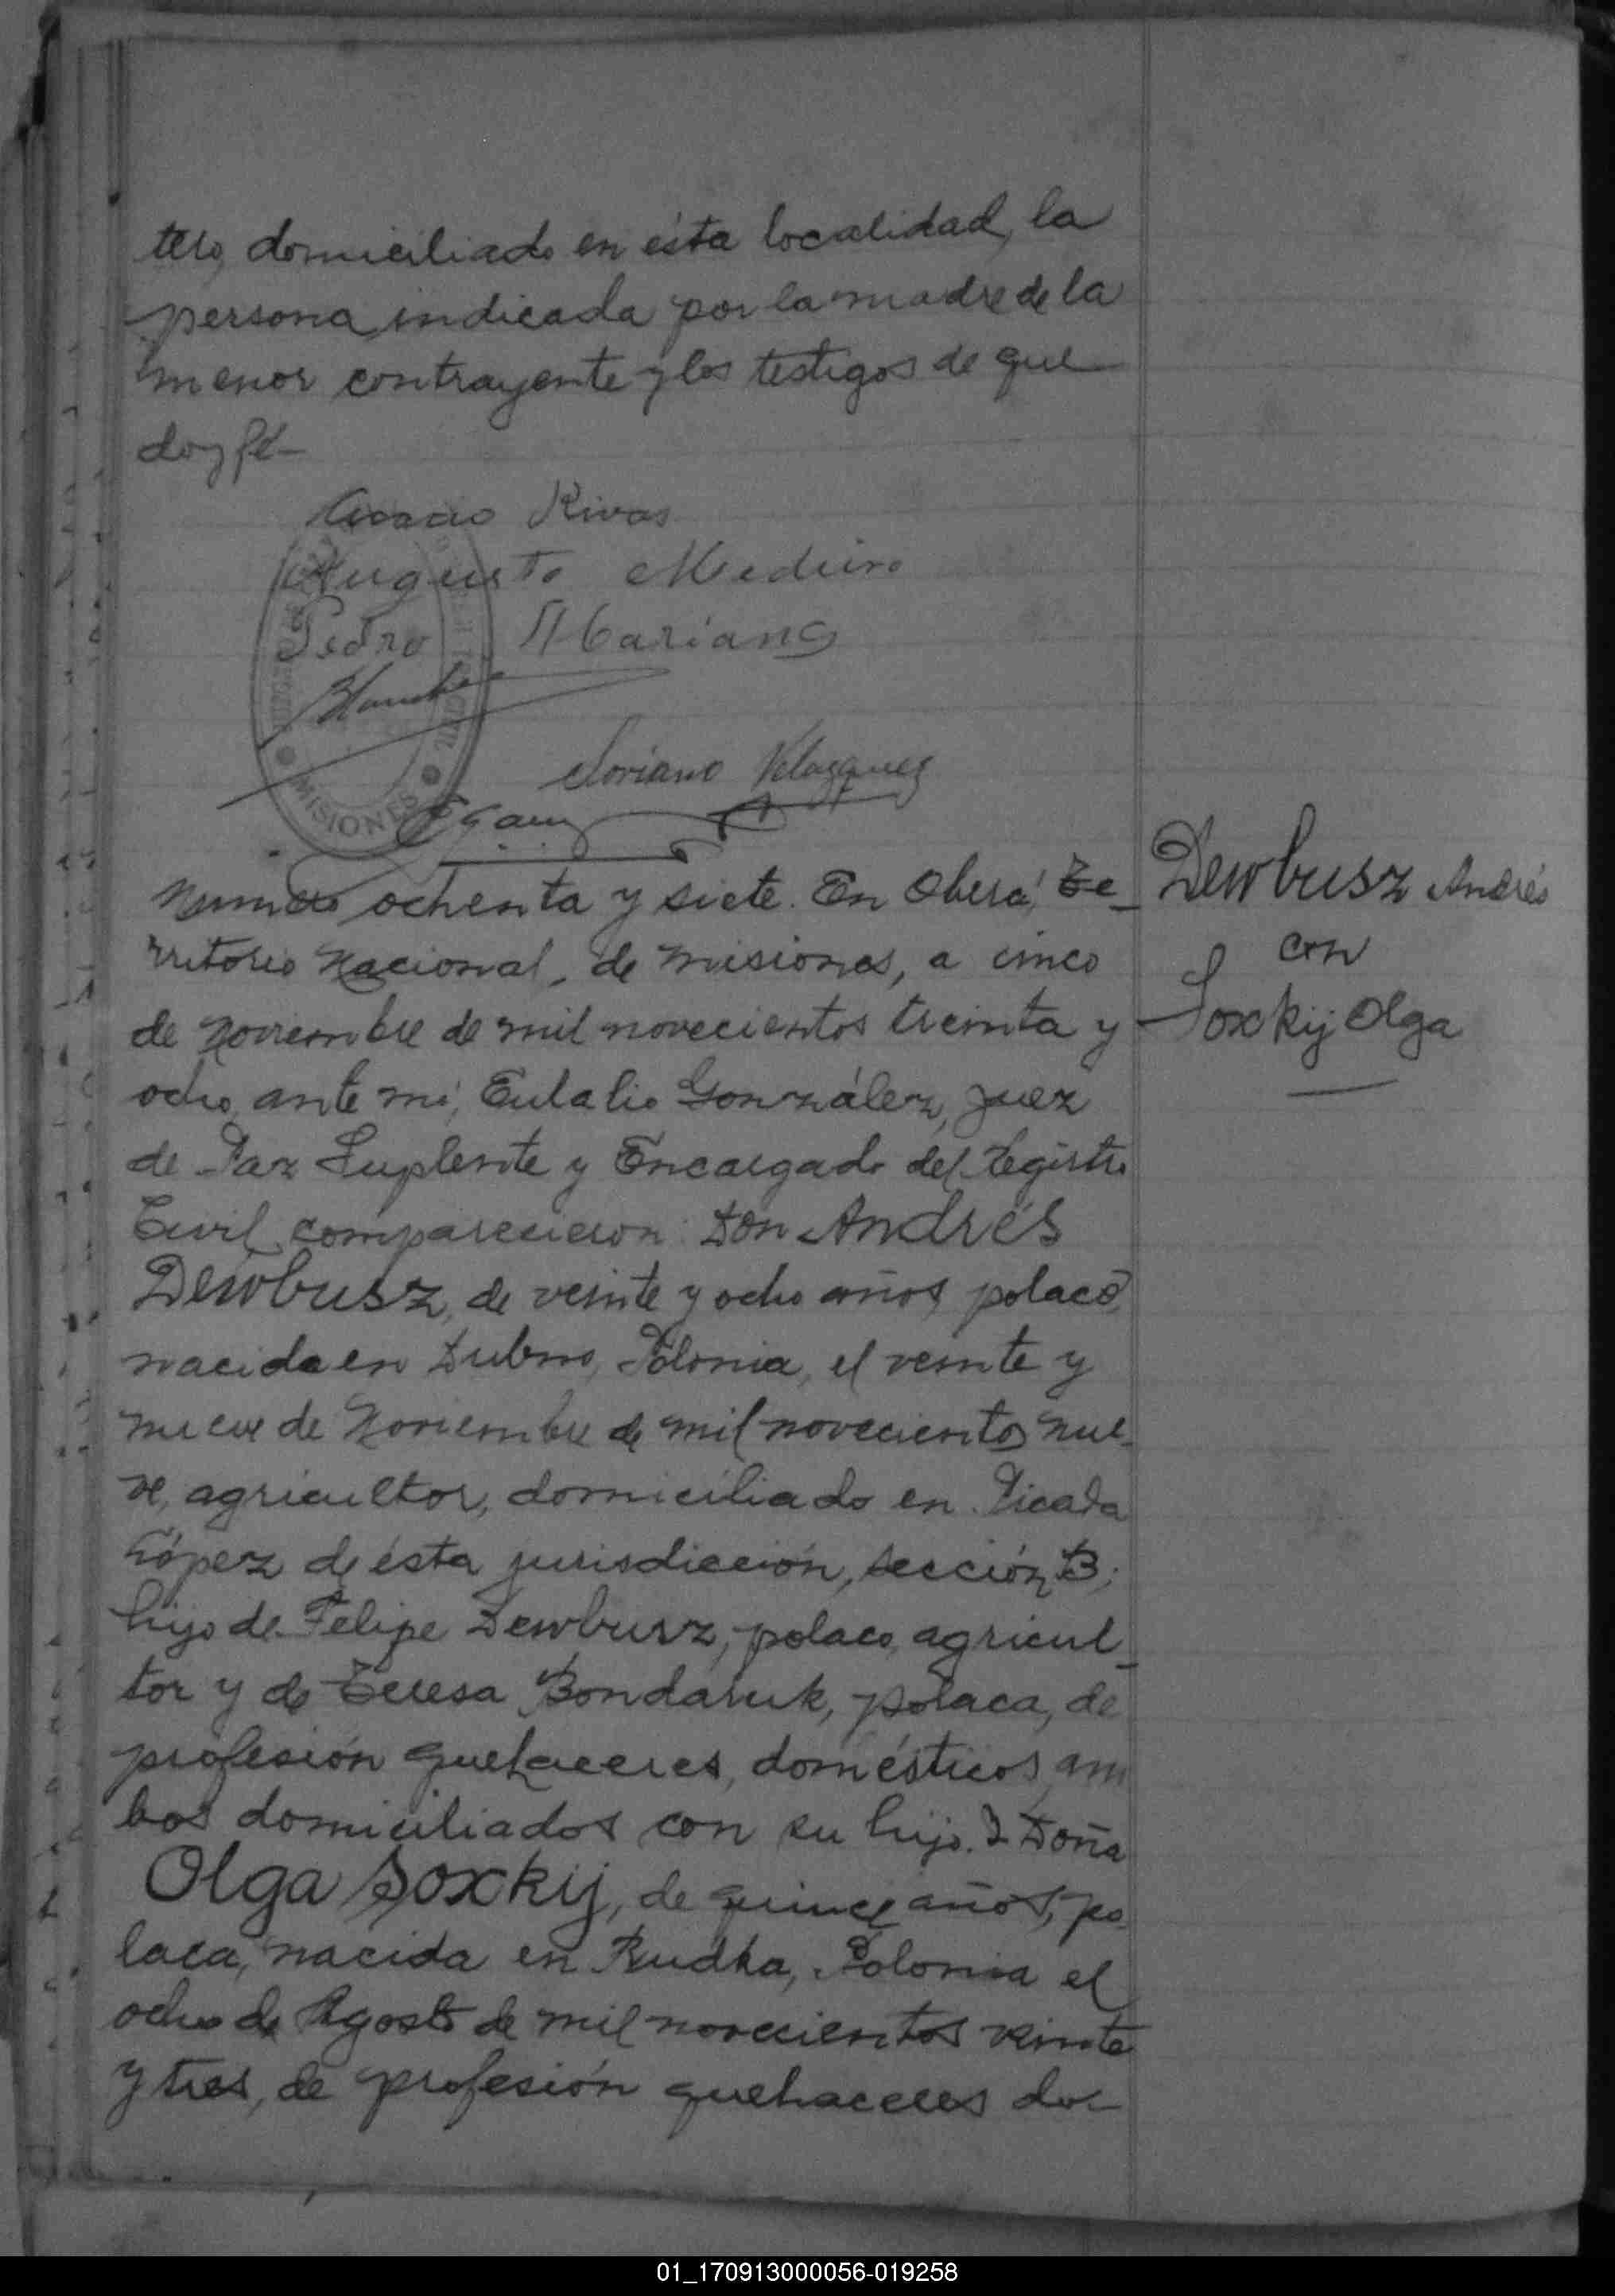 tero, domiciliado en ésta localidad, la
persona indicada por la madre de la
menor contrayente y los testigos de que
doy fé-
Rivas
Augusto Medeiro
Pedro Mariano
MISIONES
Soriano Velazquez
Numero ochenta y siete. En Oberá, Te-
rritorio Nacional, de Misiones, a cinco
de Noviembre de mil novecientos treinta y
ocho, ante mí, Eulalio González, Juez
de Paz Suplente y Encargado del Registro
Civil, comparecieron: Don Andrés
Dewbusz, de veinte y ocho años, polaco,
nacido en Dubno, Polonia, el veinte y
nueve de Noviembre de mil novecientos nue-
ve, agricultor, domiciliado en Picada
López de ésta jurisdicción, sección B;
hijo de Felipe Dewbusz, polaco, agricul-
tor y de Teresa Bondaruk, polaca, de
profesión quehaceres, domésticos, am
bos domiciliados con su hijo. Y Doña
Olga Soxkij, de quince años, po-
laca, nacida en Rudka, Polonia el
ocho de Agosto de mil novecientos veinte
y tres, de profesión quehaceres do-
Dewbusz Andrés
con
Soxkij Olga
01_170913000056-019258